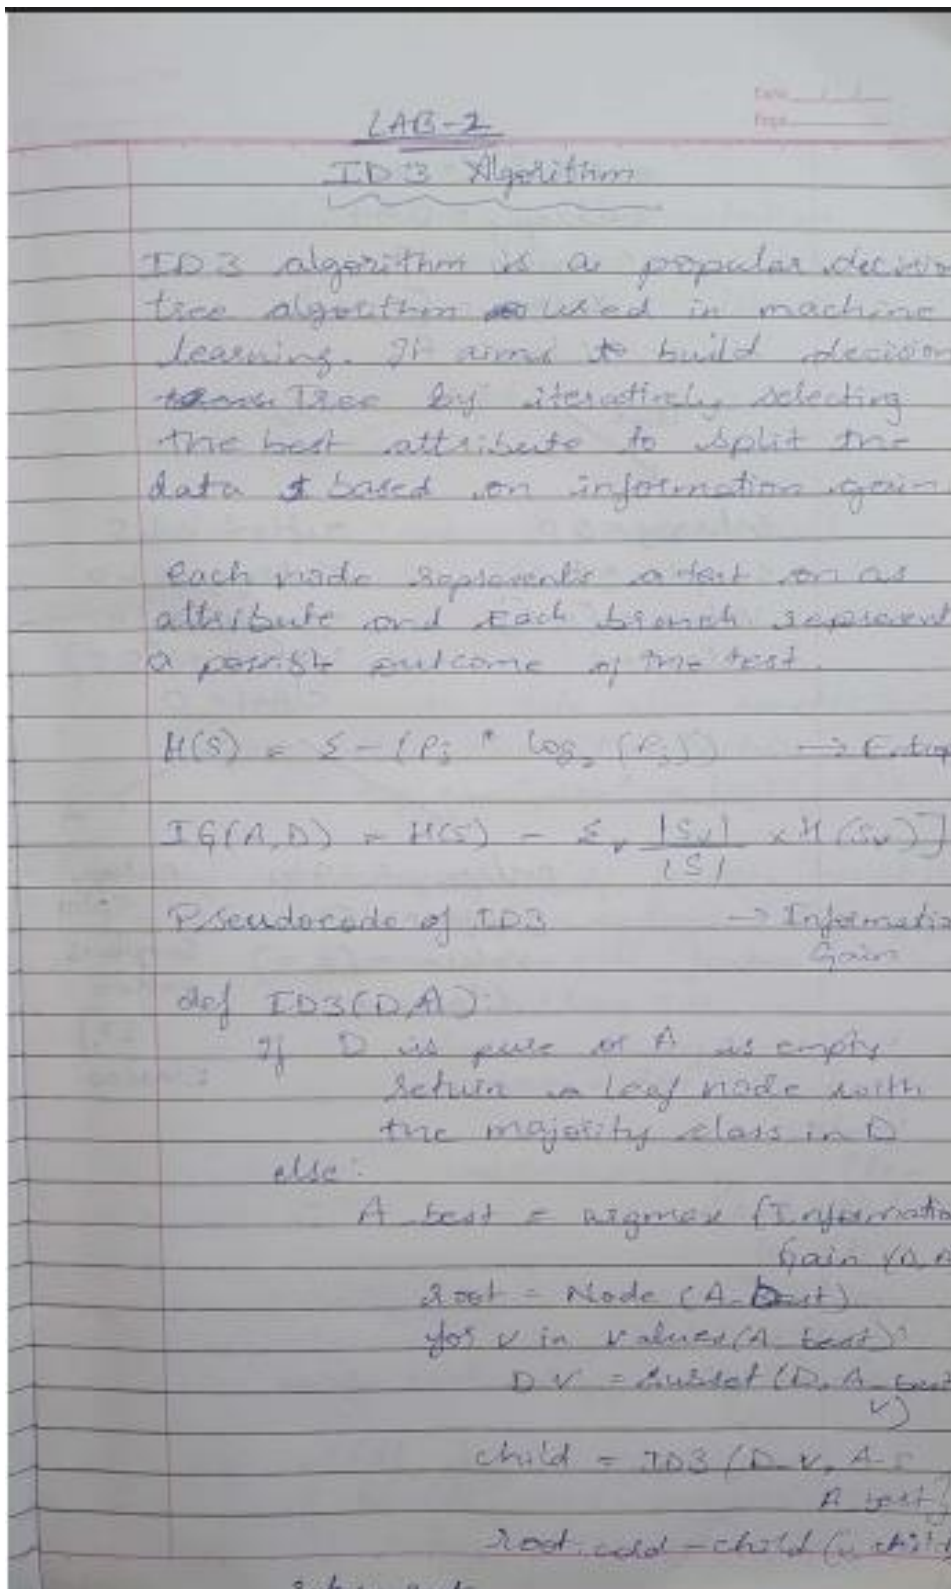 Date / /
Page
LAB-2
ID3 Algorithm
ID3 algorithm is a popular decisio
tree algorithm used in machine
learning. It aims to build decision
Tree by iteratively selecting
the best attribute to split the
data based on information gain
each node represents a test on as
attribute and each branch represent
a possible outcome of the test.
H(S) = Σ - (Pi * log₂ (Pi)) → Entrop
IG(A, D) = H(S) - Σv |Sv| / |S| × H(Sv)]
Pseudocode of ID3 → Informatio
Gain
def ID3(D,A):
If D is pure or A is empty
return a leaf node with
the majority class in D
else:
A_best = argmax (Informatio
Gain (D, A
root = Node (A_best)
for v in values(A_best):
D_v = subset (D, A_best
v)
child = ID3 (D_v, A -
A_best)
root.add-child (v, child